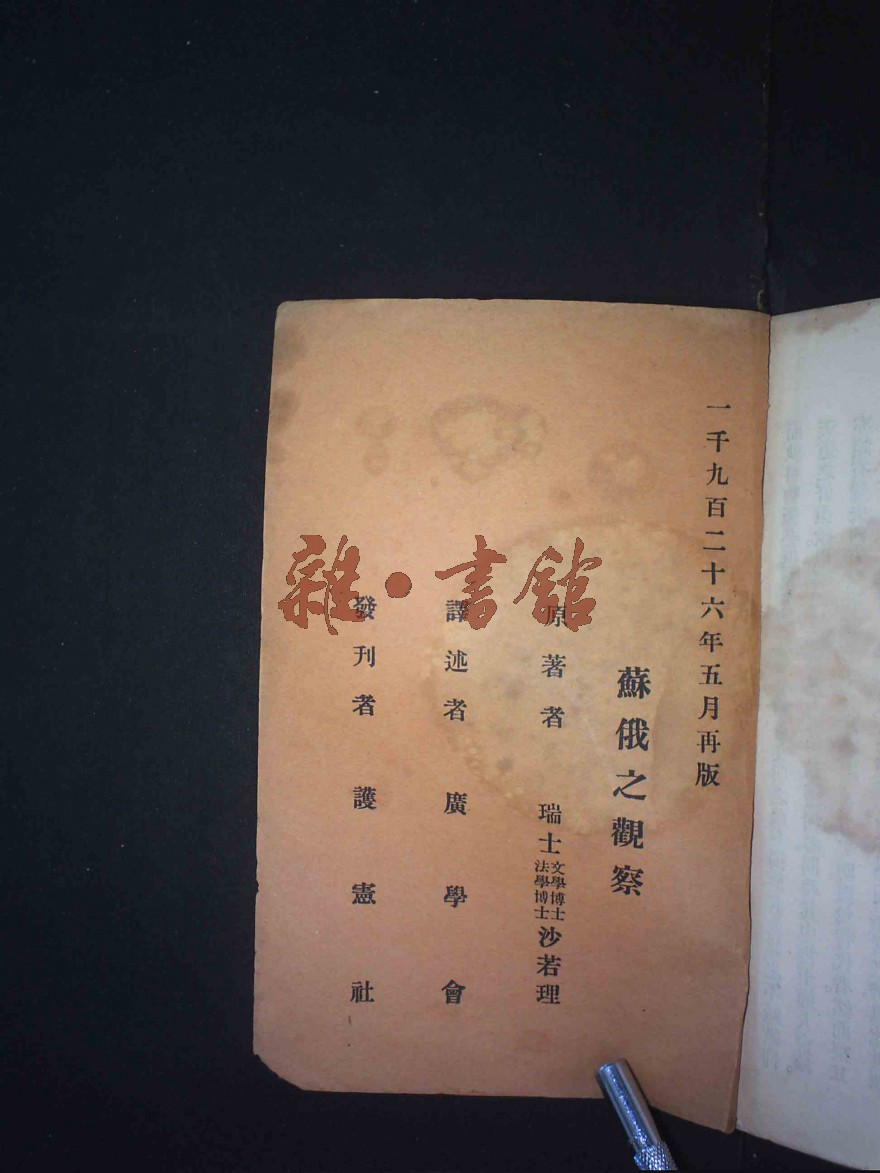 一千九百二十六年五月再版
蘇俄之觀察
原著者 瑞士文學博士法學博士沙若理
譯述者 廣學會
發刊者 護憲社
雜·書館